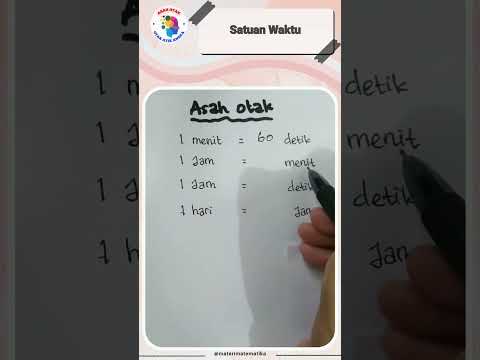 Satuan Waktu
Asah otak
1 menit = 60 detik
1 Jam = menit
1 Jam = detik
1 hari = Jam
@materimatematika